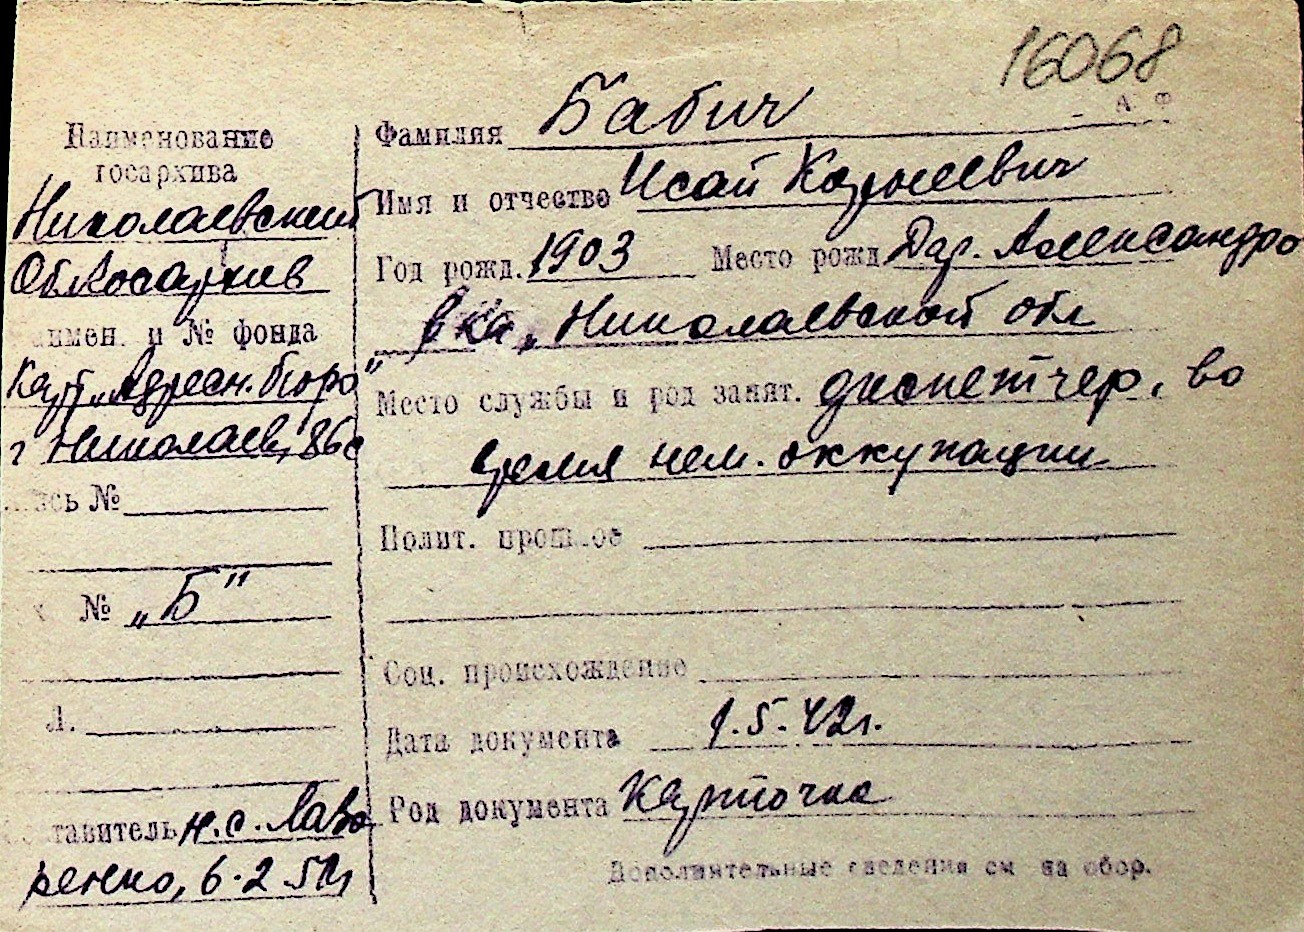 16068
А. Ф
Наименование
госархива
Николаевский
Облгосархив
аимен. и № фонда
Карт. „Адресн. бюро"
г Николаев,
ись №
№ „Б"
Л.
ставитель н.с. Лаво
ренко, 6.2.51г
Фамилия Бабич
Имя и отчество Исай Корнеевич
Год рожд. 1903 Место рожд Дер. Александро
вка, Николаевской обл
Место службы и род занят. диспетчер, во
время нем. оккупации
Полит. прошлое
Соц. происхождение
Дата документа 1.5.42г.
Род документа Карточка
Дополнительные сведения см на обор.